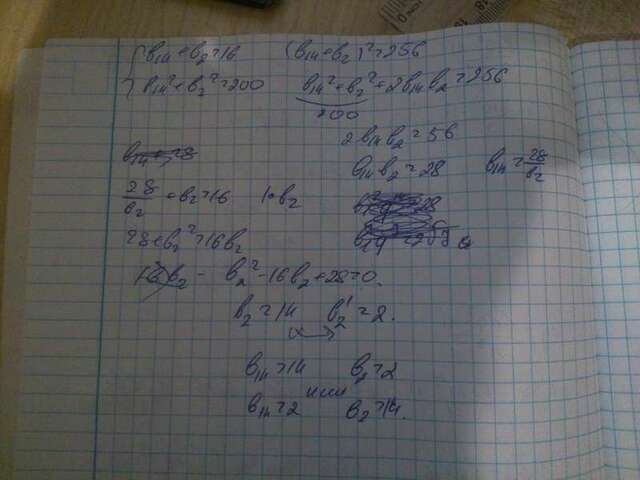 { b₁₄ + b₂ = 16   (b₁₄ + b₂)² = 256
b₁₄² + b₂² = 200   b₁₄² + b₂² + 2b₁₄b₂ = 256
200
2b₁₄b₂ = 56
b₁₄b₂ = 28   b₁₄ = 28/b₂
28/b₂ + b₂ = 16   | • b₂
28 + b₂² = 16b₂
b₂² - 16b₂ + 28 = 0.
b₂ = 14   b₂' = 2.
b₁₄ = 14   b₂ = 2
или
b₁₄ = 2   b₂ = 14.